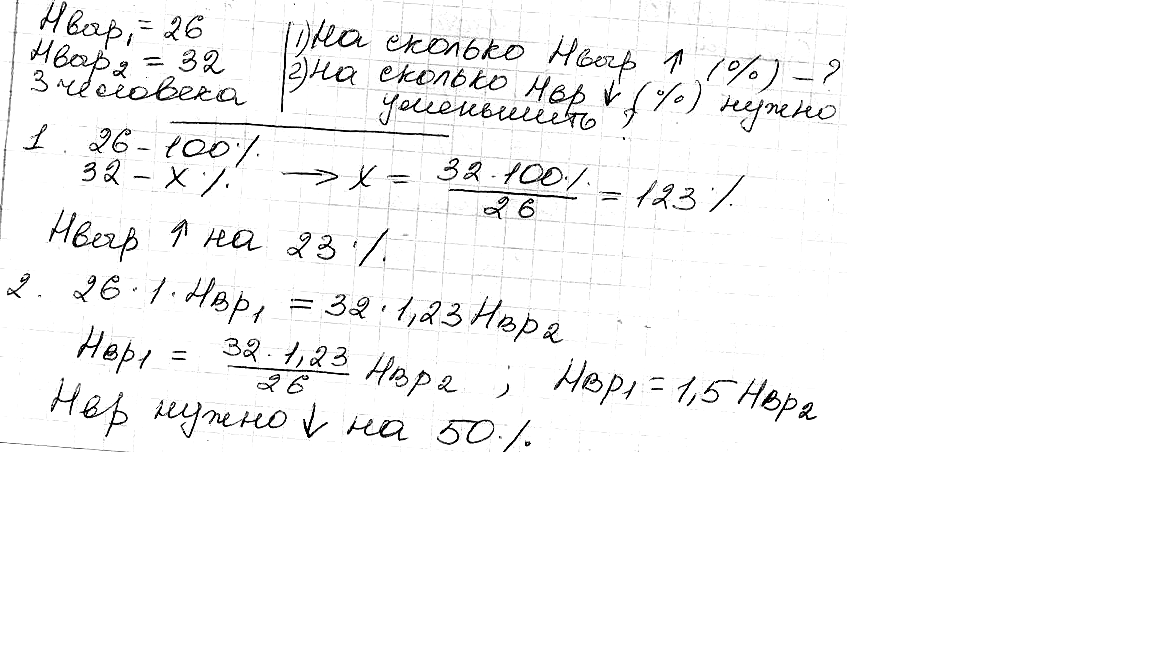 Нвыр₁ = 26
Нвыр₂ = 32
3 человека
1) На сколько Нвыр ↑ (%) – ?
2) На сколько Нвр ↓ (%) нужно
уменьшить ?
1. 26 – 100%
32 – X% → X = 32·100% / 26 = 123%
Нвыр ↑ на 23%.
2. 26·1·Нвр₁ = 32·1,23 Нвр₂
Нвр₁ = 32·1,23 / 26 Нвр₂ ; Нвр₁ = 1,5 Нвр₂
Нвр нужно ↓ на 50%.